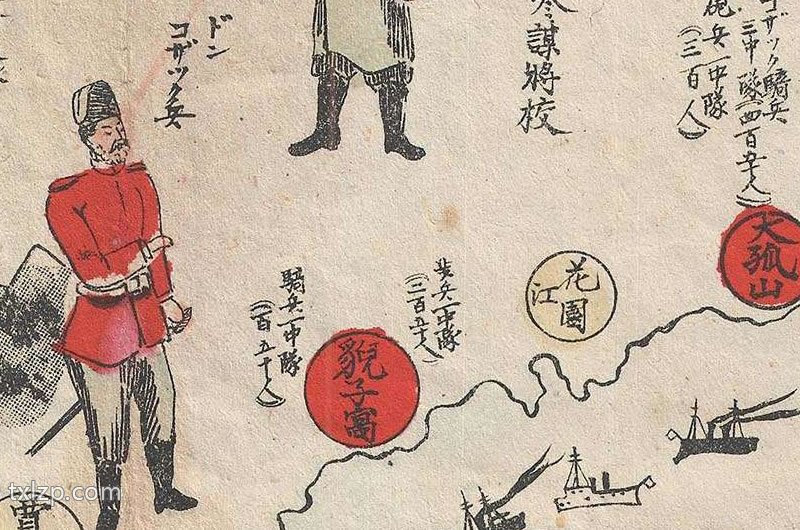 コザック騎兵
三中隊(四百五十人)
砲兵一中隊
(三百人)
大孤山
参謀将校
花園
江
歩兵一中隊
(二百五十人)
貔子窩
騎兵一中隊
(百五十人)
ドン
コザック兵
txlzp.com